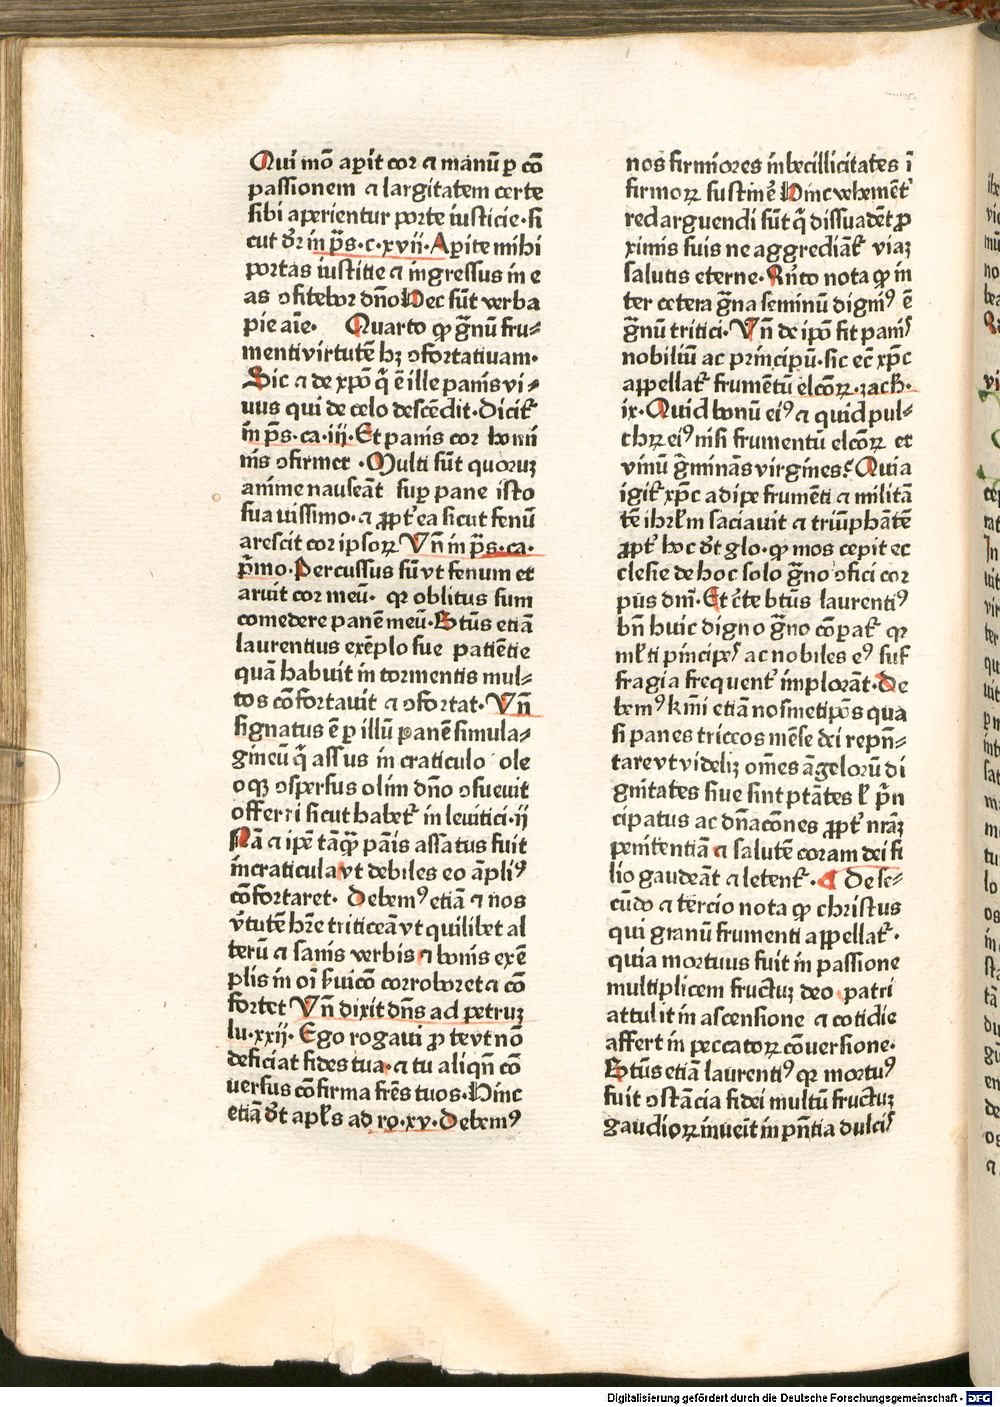 Qui mo̅ aꝑit cor ⁊ manu̅ ꝑ co̅
passionem ⁊ largitatem certe
sibi aperientur porte iusticie·si
cut dr̅ in p̅s·c·xvii·Apite mihi
portas iustitie ⁊ ingressus in e
as ꝯfitebor dn̅o Hec su̅t verba
pie ai̅e· Quarto ꝙ gr̅nu̅ fru⸗
menti virtute̅ hꝫ ꝯfortatiuam·
Sic ⁊ de xp̅o q̅ e̅ ille panis vi⸗
uus qui de celo desce̅dit·Dicit᷑
in p̅s·ca·iii·Et panis cor homi
nis ꝯfirmet ·Multi su̅t quoruꝫ
anime nausea̅t suꝑ pane isto
suauissimo·⁊ ꝓpt̕ea sicut fenu̅
arescit cor ipsoꝝ Vn̅ in p̅s·ca·
p̅mo·Percussus su̅ vt fenum et
aruit cor meu̅· qꝛ oblitus sum
comedere pane̅ meu̅·Bt̅us etia̅
laurentius exe̅plo sue patie̅tie
qua̅ habuit in tormentis mul⸗
tos co̅fortauit ⁊ ꝯfortat·Vn̅
signatus e̅ ꝑ illu̅ pane̅ simula⸗
gineu̅ q̅ assus in craticulo ole
oqꝫ ꝯspersus olim dn̅o ꝯsueuit
offerri sicut habet᷑ in leuitici·ii
Na̅ ⁊ ipe̅ ta̅qꝫ pa̅is assatus fuit
incraticula vt debiles eo a̅pliꝰ
co̅fortaret· Debemꝰ etia̅ ⁊ nos
v̕tute̅ hr̅e triticea̅ vt quilibet al
teru̅ ⁊ sanis verbis ⁊ bonis exe̅
plis in oi̅ suico̅ corroboret ⁊ co̅
fortet Vn̅ dixit dn̅s ad petruꝫ
lu·xxij· Ego rogaui ꝓ te vt no̅
deficiat fides tua·⁊ tu aliqn̅ co̅
uersus co̅firma fr̅es tuos·Hinc
etia̅ dt̕ apl̅s ad ro·xv·Debemꝰ
nos firmiores inbecillicitates i̅
firmoꝝ sustine̅ Hinc veheme̅t̕
redarguendi su̅t q̅ dissuade̅t ꝓ
ximis suis ne aggredia̅t᷑ viaꝫ
salutis eterne·Rn̅to nota ꝙ in
ter cetera gr̅na seminu̅ dignio̕ꝰ e̅
gr̅nu̅ tritici·Vn̅ de ipo̅ fit panis
nobiliu̅ ac principu̅·sic et̅ xp̅c
appellat᷑ frume̅tu̅ elcoꝝ̅·zach·
ix·Quid bonu̅ eiꝰ ⁊ quid pul⸗
chꝝ eiꝰ nisi frumentu̅ elcoꝝ̅ et
vinu̅ gr̅mina̅s virgines? Quia
igit᷑ xp̅c adipe frume̅ti ⁊ milita̅
te̅ ihrl̅m saciauit ⁊ triu̅pha̅te̅
ꝓpt̕ hoc dt̕ glo·ꝙ mos cepit ec
clesie de hoc solo gr̅no ꝯfici cor
pus dm̅·Et c̕te bt̅us laurentiꝰ
bn̅ huic digno gr̅no co̅pat᷑ qꝛ
ml̅ti principes ac nobiles eꝰ suf
fragia frequent̕ implora̅t·De
bemꝰ km̅i etia̅ nosmetipo̅s qua
si panes triccos me̅se dei repn̅⸗
tare vt videlꝫ om̅es a̅geloru̅ di
gnitates siue sint pta̅tes l̕ p̅n
cipatus ac dn̅aco̅nes ꝓpt̕ nr̅aꝫ
penitentia̅ ⁊ salute̅ coram dei fi
lio gaudea̅t ⁊ letent᷑·¶ De se⸗
cu̅do ⁊ tercio nota ꝙ christus
qui granu̅ frumenti appellat᷑·
quia mortuus fuit in passione
multiplicem fructuꝫ deo patri
attulit in ascensione ⁊ cotidie
affert in peccatoꝝ co̅uersione·
Bt̅us etia̅ laurentiꝰ qꝛ mortuꝰ
fuit ꝯsta̅cia fidei multu̅ fructuꝫ
gaudioꝝ inueit in pn̅tia dulcis
Digitalisierung gefördert durch die Deutsche Forschungsgemeinschaft - DFG